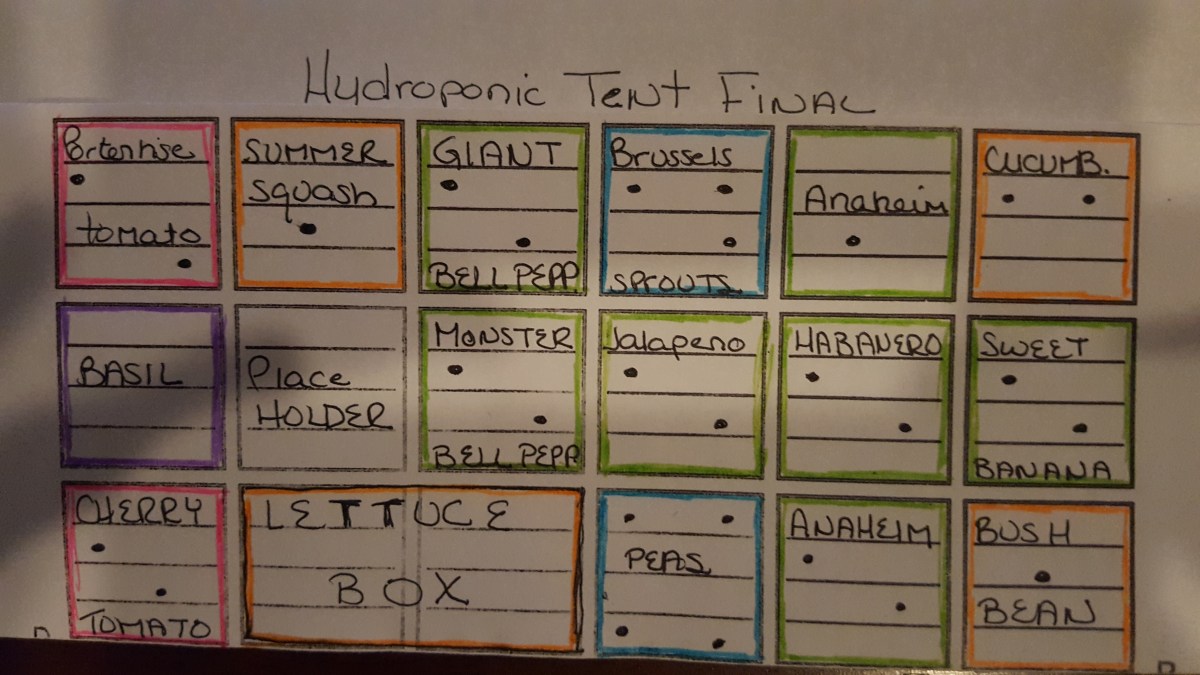 Hydroponic Tent Final
Porterhise
tomato
SUMMER
squash
GIANT
BELL PEPP
Brussels
SPROUTS
Anaheim
CUCUMB.
BASIL
Place
HOLDER
MONSTER
BELL PEPP
Jalapeno
HABANERO
SWEET
BANANA
CHERRY
TOMATO
LETTUCE
BOX
PEAS
ANAHEIM
BUSH
BEAN